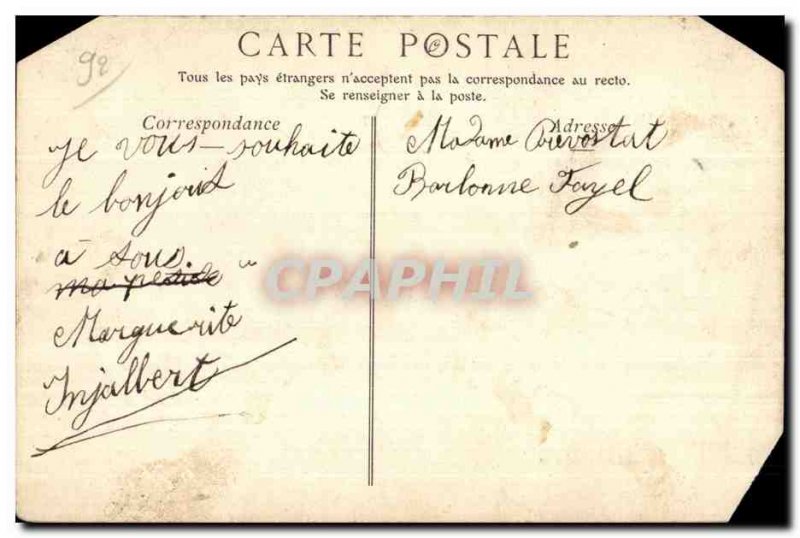 92
CARTE POSTALE
Tous les pays étrangers n'acceptent pas la correspondance au recto.
Se renseigner à la poste.
Correspondance
Adresse
"Je vous souhaite
le bonjour
à tous. "
Marguerite
Injalbert
Madame Prévostat
Barbonne Fayel
CPAPHIL